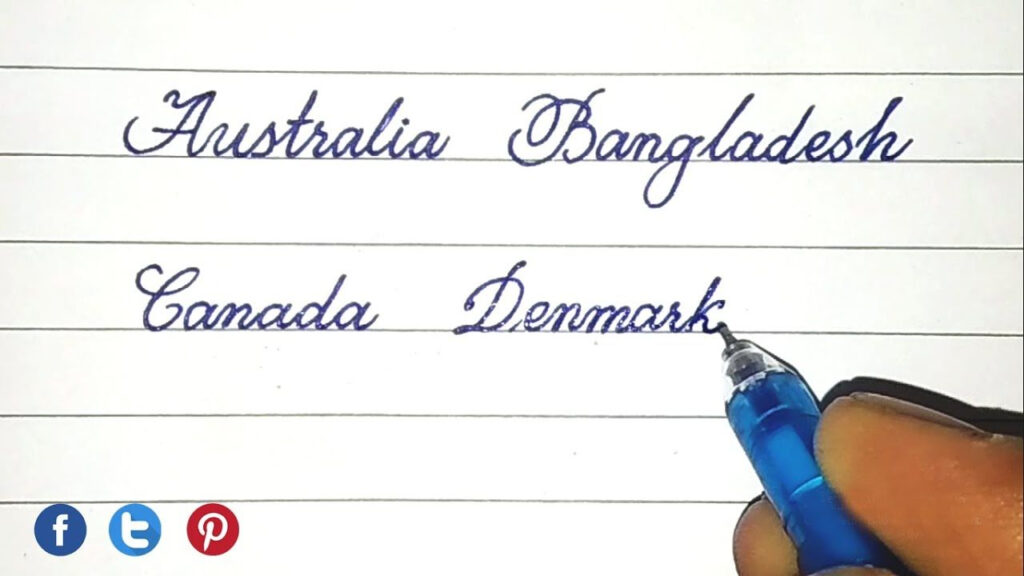 Australia Bangladesh
Canada Denmark